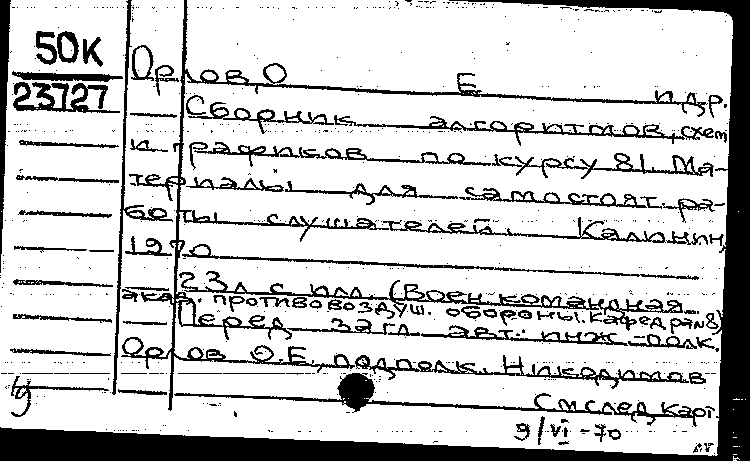 50К
23727
Орлов, О Е и др.
Сборник алгоритмов, схем
и графиков по курсу 81. Ма-
териалы для самостоят. ра-
боты слушателей. Калинин,
1970
23л с илл. (Воен. командная
акад. противовоздуш. обороны. Кафедра №8)
Перед загл. авт.: инж.-полк.
Орлов О.Е., подполк. Никодимов
См след карт.
9/VI-70